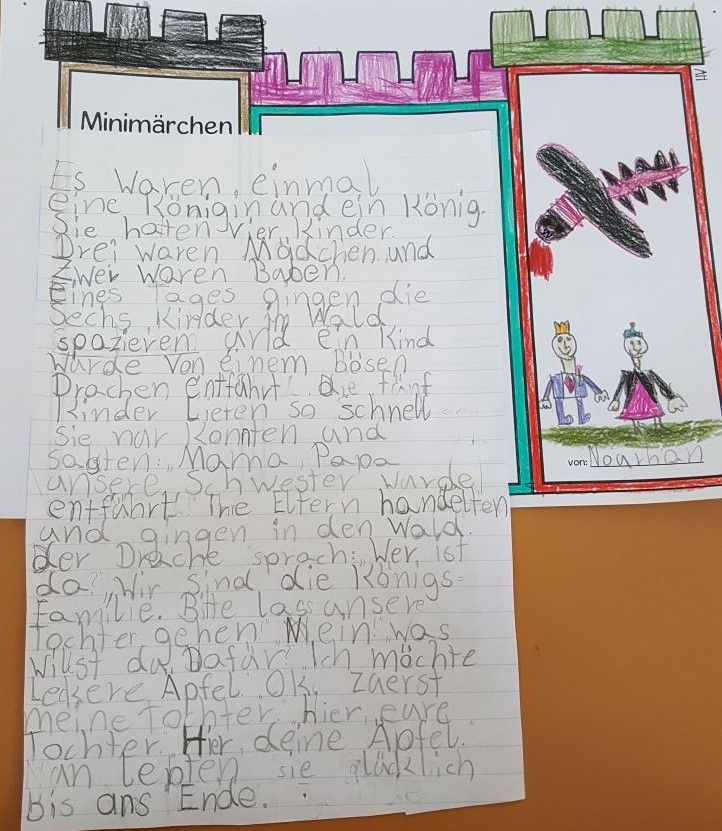 Minimärchen
Es waren einmal
eine Königin und ein König.
Sie hatten vier Kinder.
Drei waren Mädchen und
Zwei waren Baben.
Eines Tages gingen die
Sechs Kinder im Wald
spazieren und ein Kind
wurde von einem bösen
Drachen entführt. die fünf
Kinder Liefen so schnell
sie nur konnten und
sagten: „Mama, Papa
unsere Schwester wurde
entführt! Ihre Eltern handelten
und gingen in den Wald.
der Drache sprach: „Wer ist
da?" „Wir sind die Königs=
familie. Bitte lass unsere
Tochter gehen!" „Nein!" „was
willst du Dafür?" „Ich möchte
Leckere Äpfel." „OK, zuerst
meine Tochter." „hier, eure
Tochter." „Hier, deine Äpfel."
lebten sie glücklich
bis ans Ende.
von: Nourhan